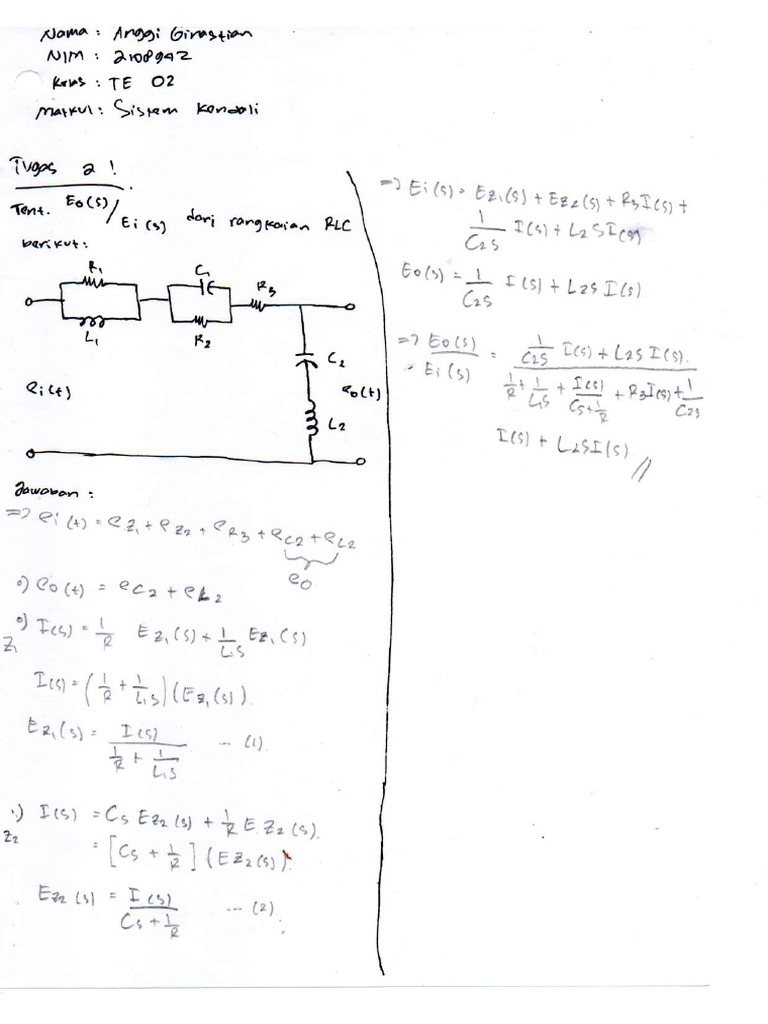 Nama : Anggi Girastian
NIM : 2108942
Kelas : TE 02
Matkul : Sistem Kendali
Tugas 2 !
Tent. Eo(s)/Ei(s) dari rangkaian RLC
berikut:
R1
L1
C1
R2
R3
C2
L2
ei(t)
eo(t)
Jawaban :
=> ei(t) = eZ1 + eZ2 + eR3 + eC2 + eL2
eo
•) eo(t) = eC2 + eL2
•) I(s) = 1/R EZ1(s) + 1/L1S EZ1(s)
Z1
I(s) = (1/R + 1/L1S) (EZ1(s)).
EZ1(s) = I(s) / (1/R + 1/L1S) --- (1).
•) I(s) = Cs EZ2(s) + 1/R EZ2(s).
Z2
= [Cs + 1/R] (EZ2(s)).
EZ2(s) = I(s) / (Cs + 1/R) --- (2).
=> Ei(s) = EZ1(s) + EZ2(s) + R3I(s) +
1/C2S I(s) + L2SI(s)
Eo(s) = 1/C2S I(s) + L2S I(s)
=> Eo(s)/Ei(s) = 1/C2S I(s) + L2S I(s).
1/R + 1/L1S + I(s)/(Cs + 1/R) + R3I(s) + 1/C2S
I(s) + L2SI(s) //